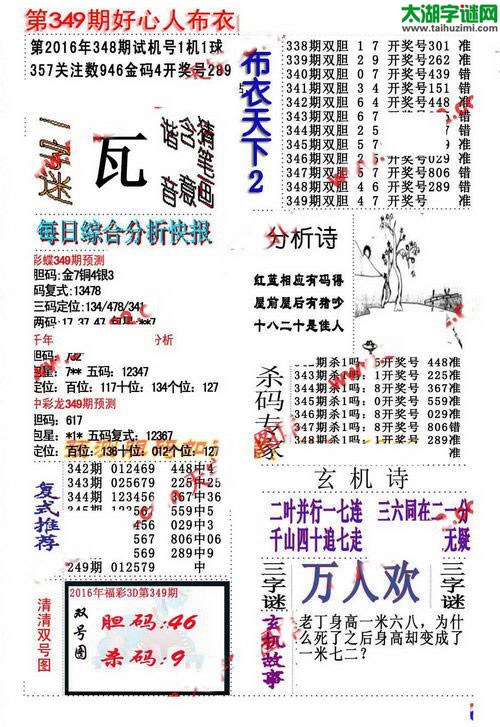 太湖字谜网
www.taihuzimi.com
第349期好心人布衣
第2016年348期试机号1机1球
357关注数946金码4开奖号289
瓦
每日综合分析快报
彩蝶349期预测
胆码:金7铜4银3
码复式:13478
三码定位:134/478/34
千年
分析
包星:7** 五码:12347
定位:百位:117十位:134个位:127
中彩龙349期预测
胆码:617
包星:*1* 五码复式:12367
定位:百位:136十位:012个位:127
复式推荐
342期 012469 448中4
343期 025679 225
344期 123456 367中36
559中5
456 029中
567 806中06
569 289中
249期 012579 中
清清双号图
2016年福彩3D第349期
双号图
胆码:46
杀码:9
布衣天下2
338期双胆 1 7 开奖号301 准
339期双胆 2 9 开奖号262 准
340期双胆 0 7 开奖号439 错
341期双胆 3 4 开奖号151 错
342期双胆 6 4 开奖号448 准
343期双胆 6 7
344期双胆 2 5
错
345期双胆
错
346期双胆 2
开奖号029 准
347期双胆 6 7 开奖号806 错
348期双胆 4 6 开奖号289 错
349期双胆 4 7 开奖号
准
分析诗
红蓝相应有码得
屋前屋后有猪吵
十八二十是佳人
杀码专家
342期杀1吗: 5开奖号 448准
343期杀1吗: 1开奖号 225准
344期杀1吗: 8开奖号 367准
345期杀1吗: 0开奖号 559准
346期杀1吗: 5开奖号 029准
347期杀1吗: 8开奖号 806错
348期杀1吗: 1开奖号 289准
准
玄机诗
二叶并行一七连 三六同在二一分
千山四十追七走 无疑
三字谜
万人欢
三字谜
玄机故事
老丁身高一米六八，为什
么死了之后身高却变成了
一米七二？